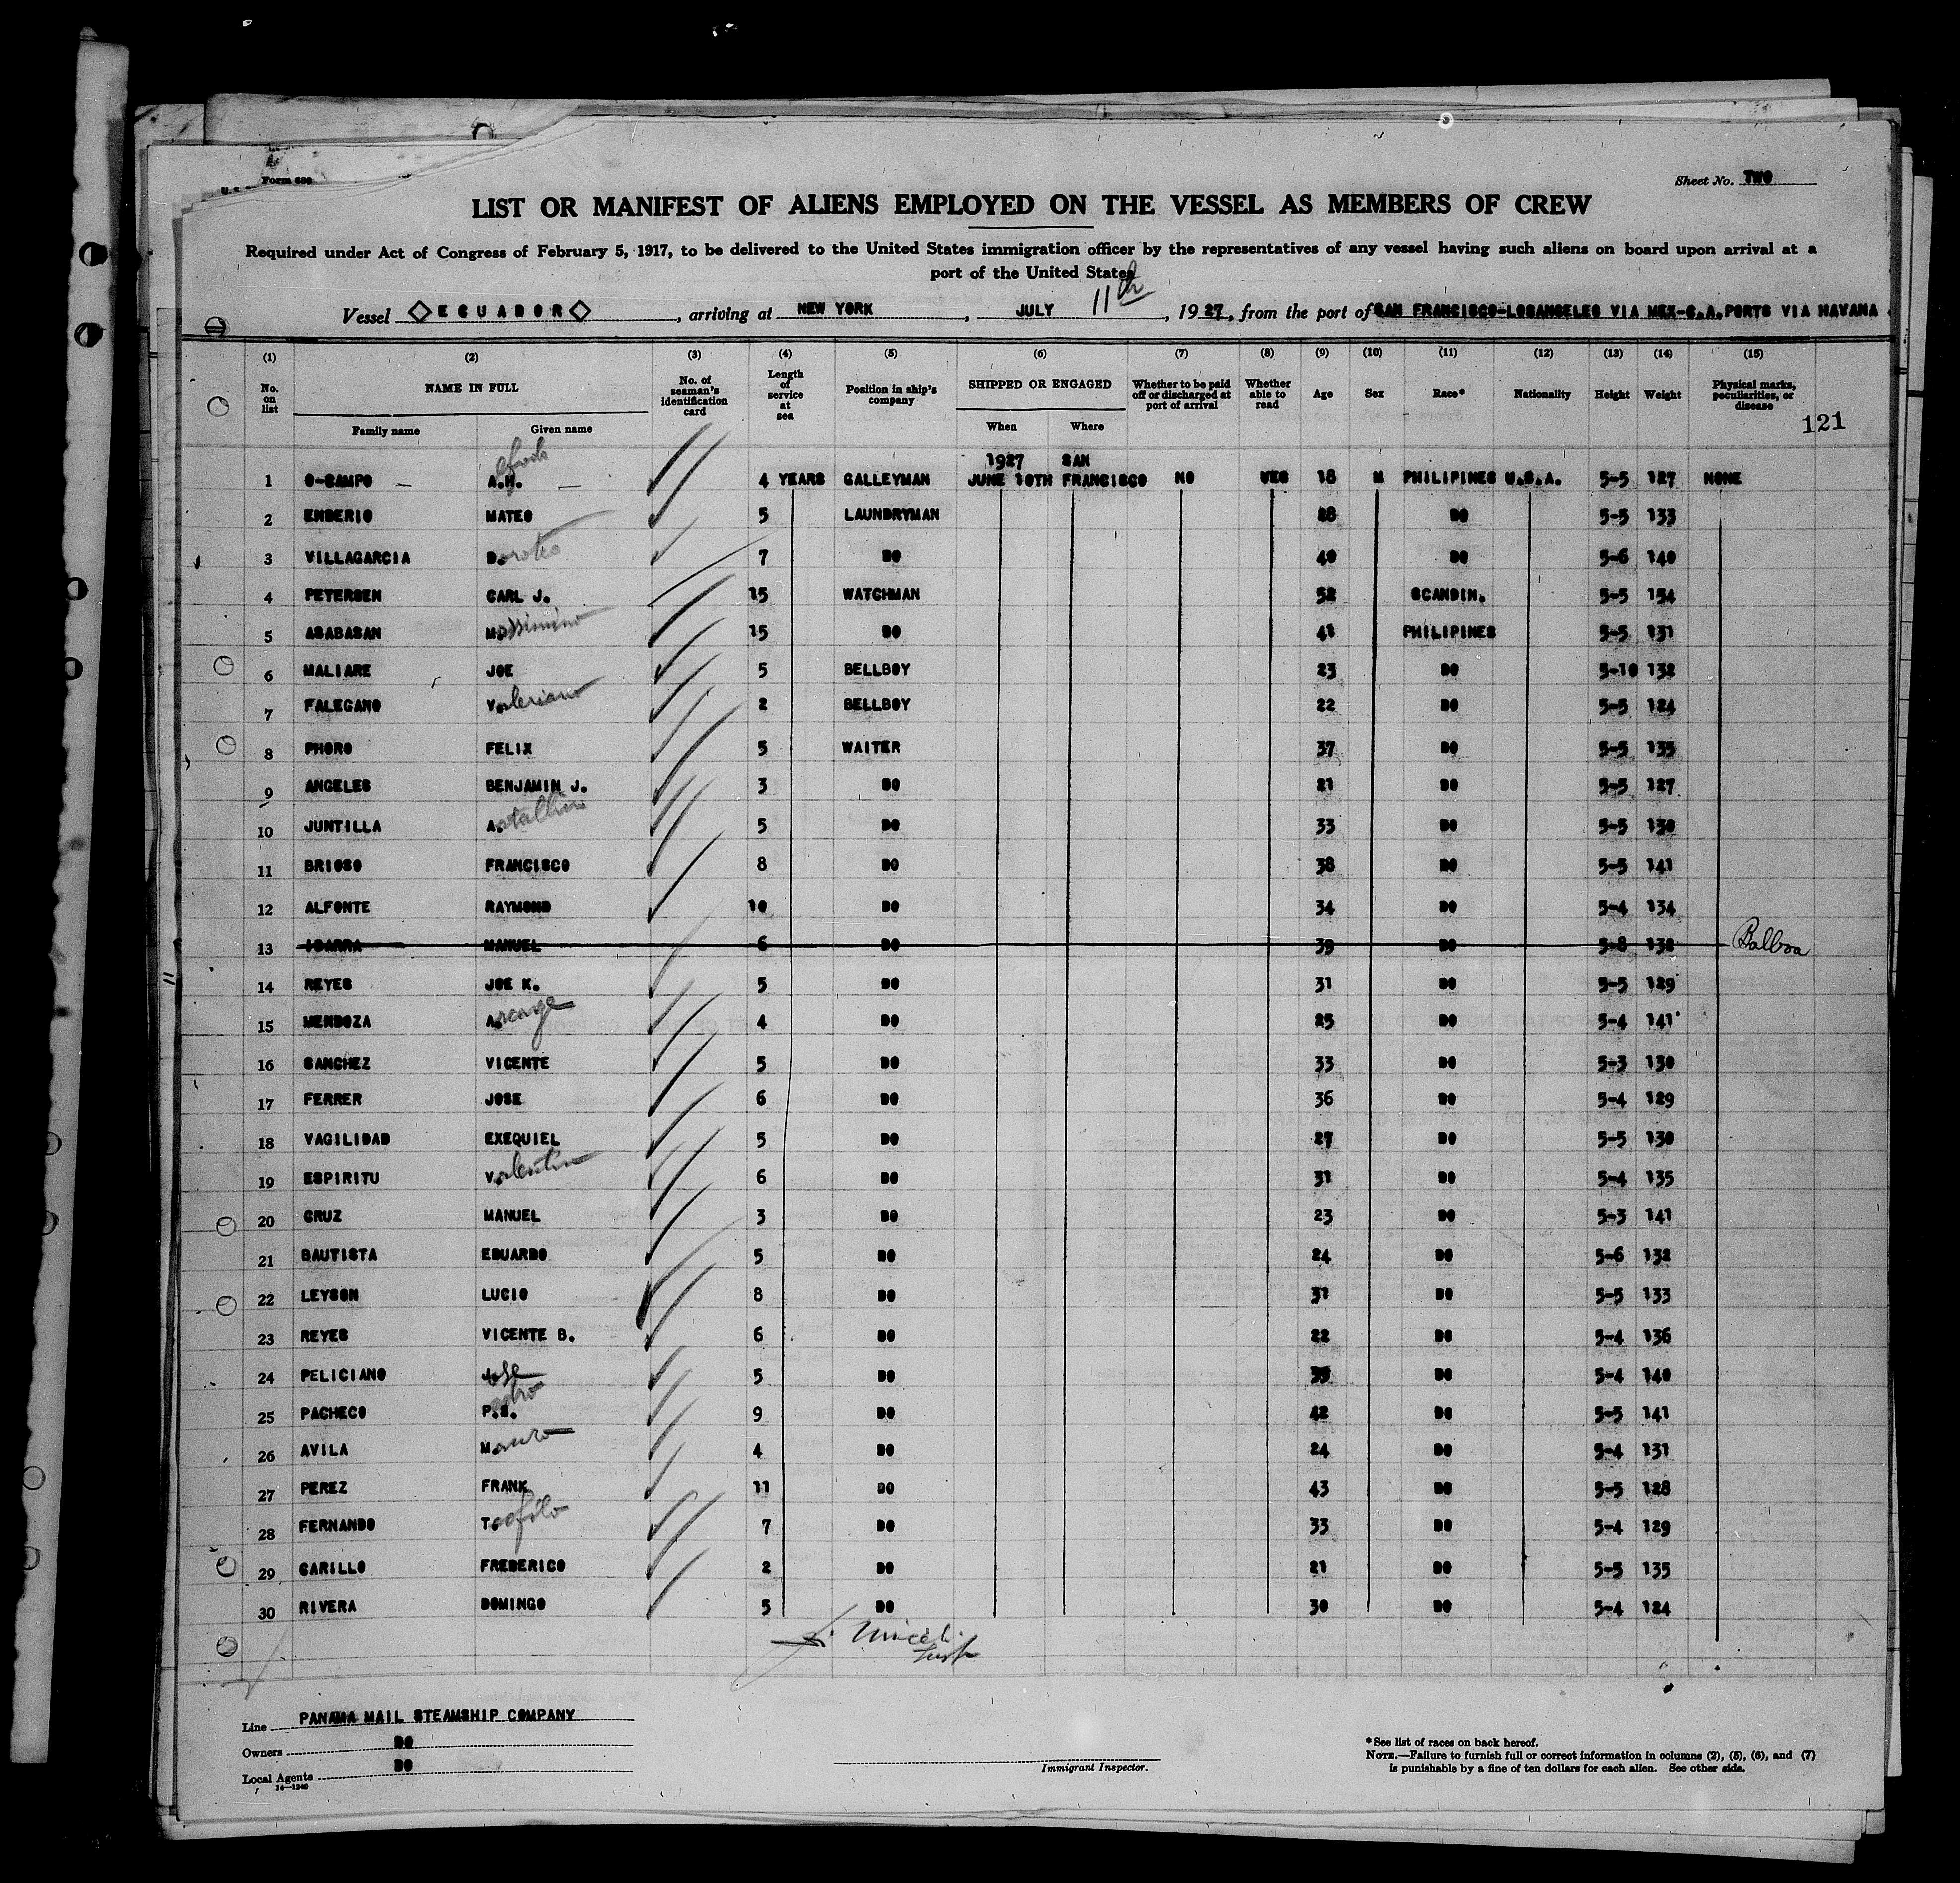 Form 680
Sheet No. TWO
LIST OR MANIFEST OF ALIENS EMPLOYED ON THE VESSEL AS MEMBERS OF CREW
Required under Act of Congress of February 5, 1917, to be delivered to the United States immigration officer by the representatives of any vessel having such aliens on board upon arrival at a
port of the United States
Vessel ECUADOR, arriving at NEW YORK, JULY 11th, 1927, from the port of SAN FRANCISCO-LOSANGELES VIA MEX-C.A.PORTS VIA HAVANA
(1) (2) (3) (4) (5) (6) (7) (8) (9) (10) (11) (12) (13) (14) (15)
No. on list NAME IN FULL No. of seaman's identification card Length of service at sea Position in ship's company SHIPPED OR ENGAGED Whether to be paid off or discharged at port of arrival Whether able to read Age Sex Race* Nationality Height Weight Physical marks, peculiarities, or disease
Family name Given name When Where
121
1927 SAN
1 O-CAMPO A.H. 4 YEARS GALLEYMAN JUNE 10TH FRANCISCO NO YES 18 M PHILIPINES U.S.A. 5-5 127 NONE
2 ENBERIO MATEO 5 LAUNDRYMAN 28 DO 5-5 133
3 VILLAGARCIA Doroteo 7 DO 40 DO 5-6 140
4 PETERSEN CARL J. 15 WATCHMAN 52 SCANDIN. 5-5 154
5 ASABASAN M. 15 DO 41 PHILIPINES 5-5 131
6 MALIARE JOE 5 BELLBOY 23 DO 5-10 132
7 FALEGANO Valeriano 2 BELLBOY 22 DO 5-5 124
8 PHORO FELIX 5 WAITER 37 DO 5-5 135
9 ANGELES BENJAMIN J. 3 DO 21 DO 5-5 127
10 JUNTILLA A. 5 DO 33 DO 5-5 130
11 BRIOSO FRANCISCO 8 DO 38 DO 5-5 141
12 ALFONTE RAYMOND 10 DO 34 DO 5-4 134
13 IBARRA MANUEL 6 DO 39 DO 5-8 138 Balboa
14 REYES JOE K. 5 DO 31 DO 5-5 129
15 MENDOZA A. 4 DO 25 DO 5-4 141
16 SANCHEZ VICENTE 5 DO 33 DO 5-3 130
17 FERRER JOSE 6 DO 36 DO 5-4 129
18 VAGILIDAD EXEQUIEL 5 DO 27 DO 5-5 130
19 ESPIRITU Valentin 6 DO 31 DO 5-4 135
20 CRUZ MANUEL 3 DO 23 DO 5-3 141
21 BAUTISTA EDUARDO 5 DO 24 DO 5-6 132
22 LEYSON LUCIO 8 DO 31 DO 5-5 133
23 REYES VICENTE B. 6 DO 22 DO 5-4 136
24 PELICIANO 5 DO 35 DO 5-4 140
25 PACHECO P.S. 9 DO 42 DO 5-5 141
26 AVILA Mauro 4 DO 24 DO 5-4 131
27 PEREZ FRANK 11 DO 43 DO 5-5 128
28 FERNANDO Teofilo 7 DO 33 DO 5-4 129
29 CARILLO FREDERICO 2 DO 21 DO 5-5 135
30 RIVERA DOMINGO 5 DO 30 DO 5-4 124
Line PANAMA MAIL STEAMSHIP COMPANY
Owners DO
Local Agents DO
14—1240
Immigrant Inspector.
*See list of races on back hereof.
NOTE.—Failure to furnish full or correct information in columns (2), (5), (6), and (7)
is punishable by a fine of ten dollars for each alien. See other side.